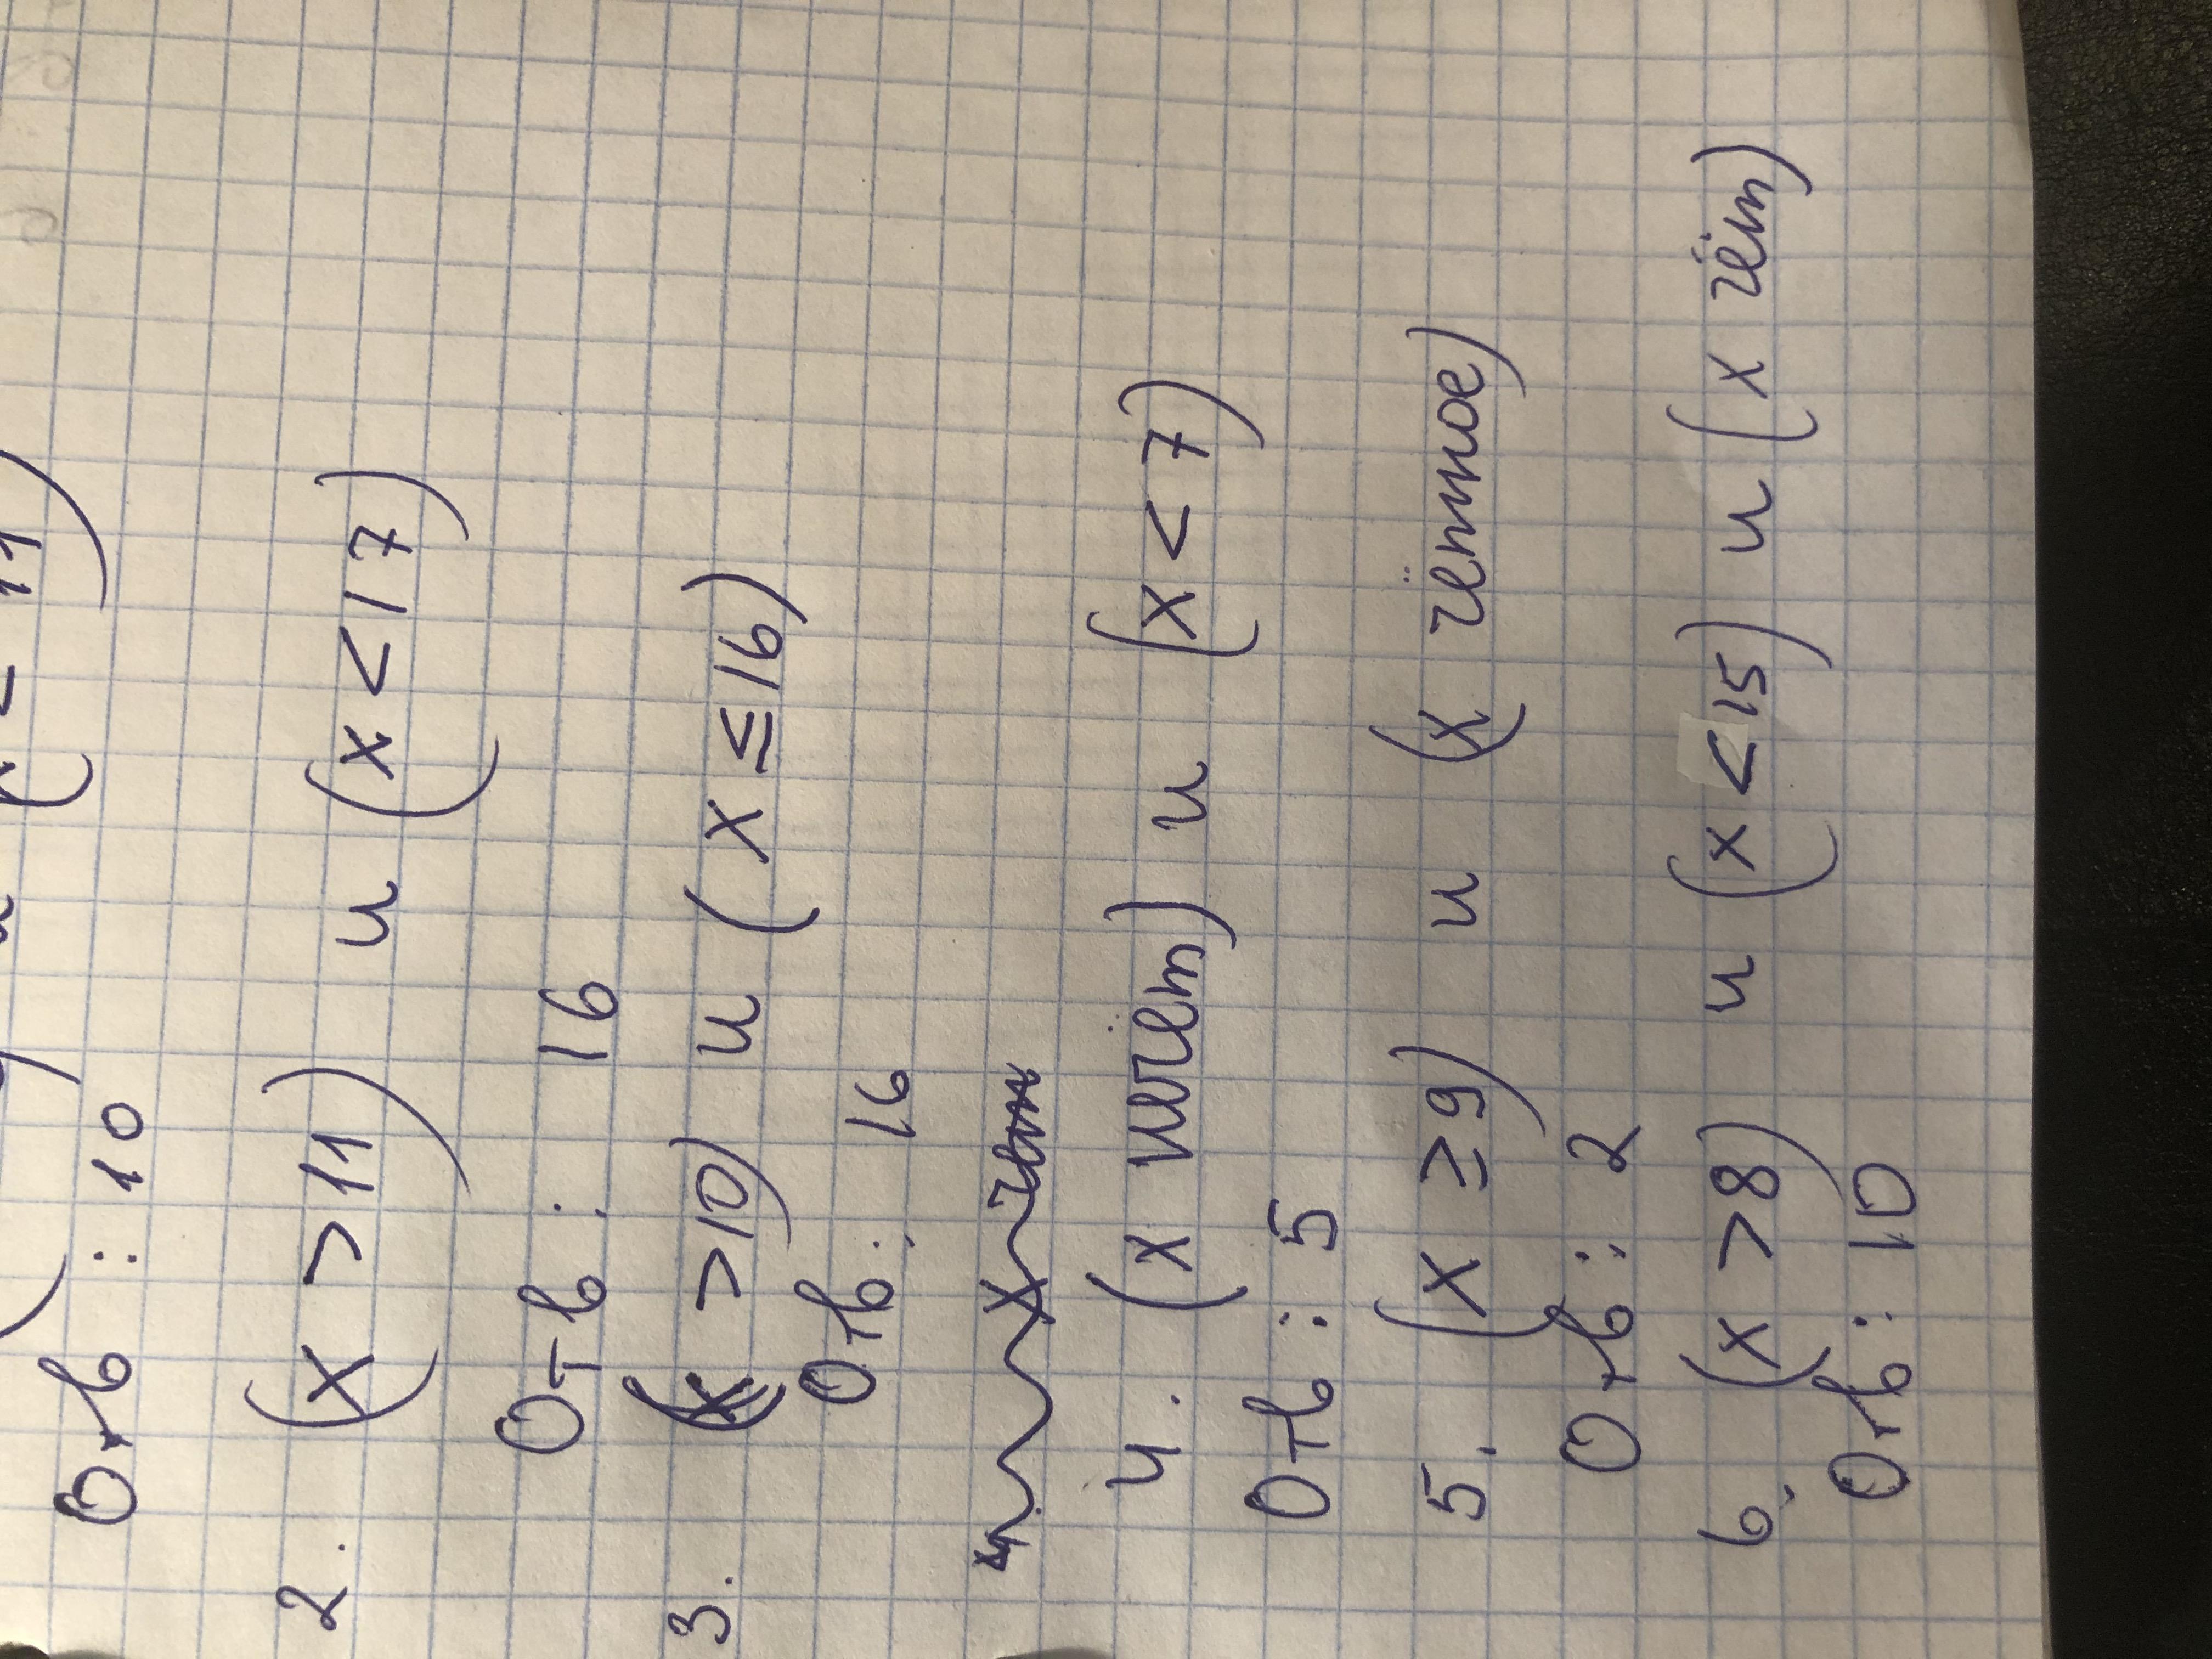 Отв : 10
2. (x > 11) и (x < 17)
Отв : 16
3. (x > 10) и (x ≤ 16)
Отв : 16
4. (x нечёт) и (x < 7)
Отв : 5
5. (x ≥ 9) и (x чётное)
Отв : 2
6. (x > 8) и (x < 15) и (x чёт)
Отв : 10